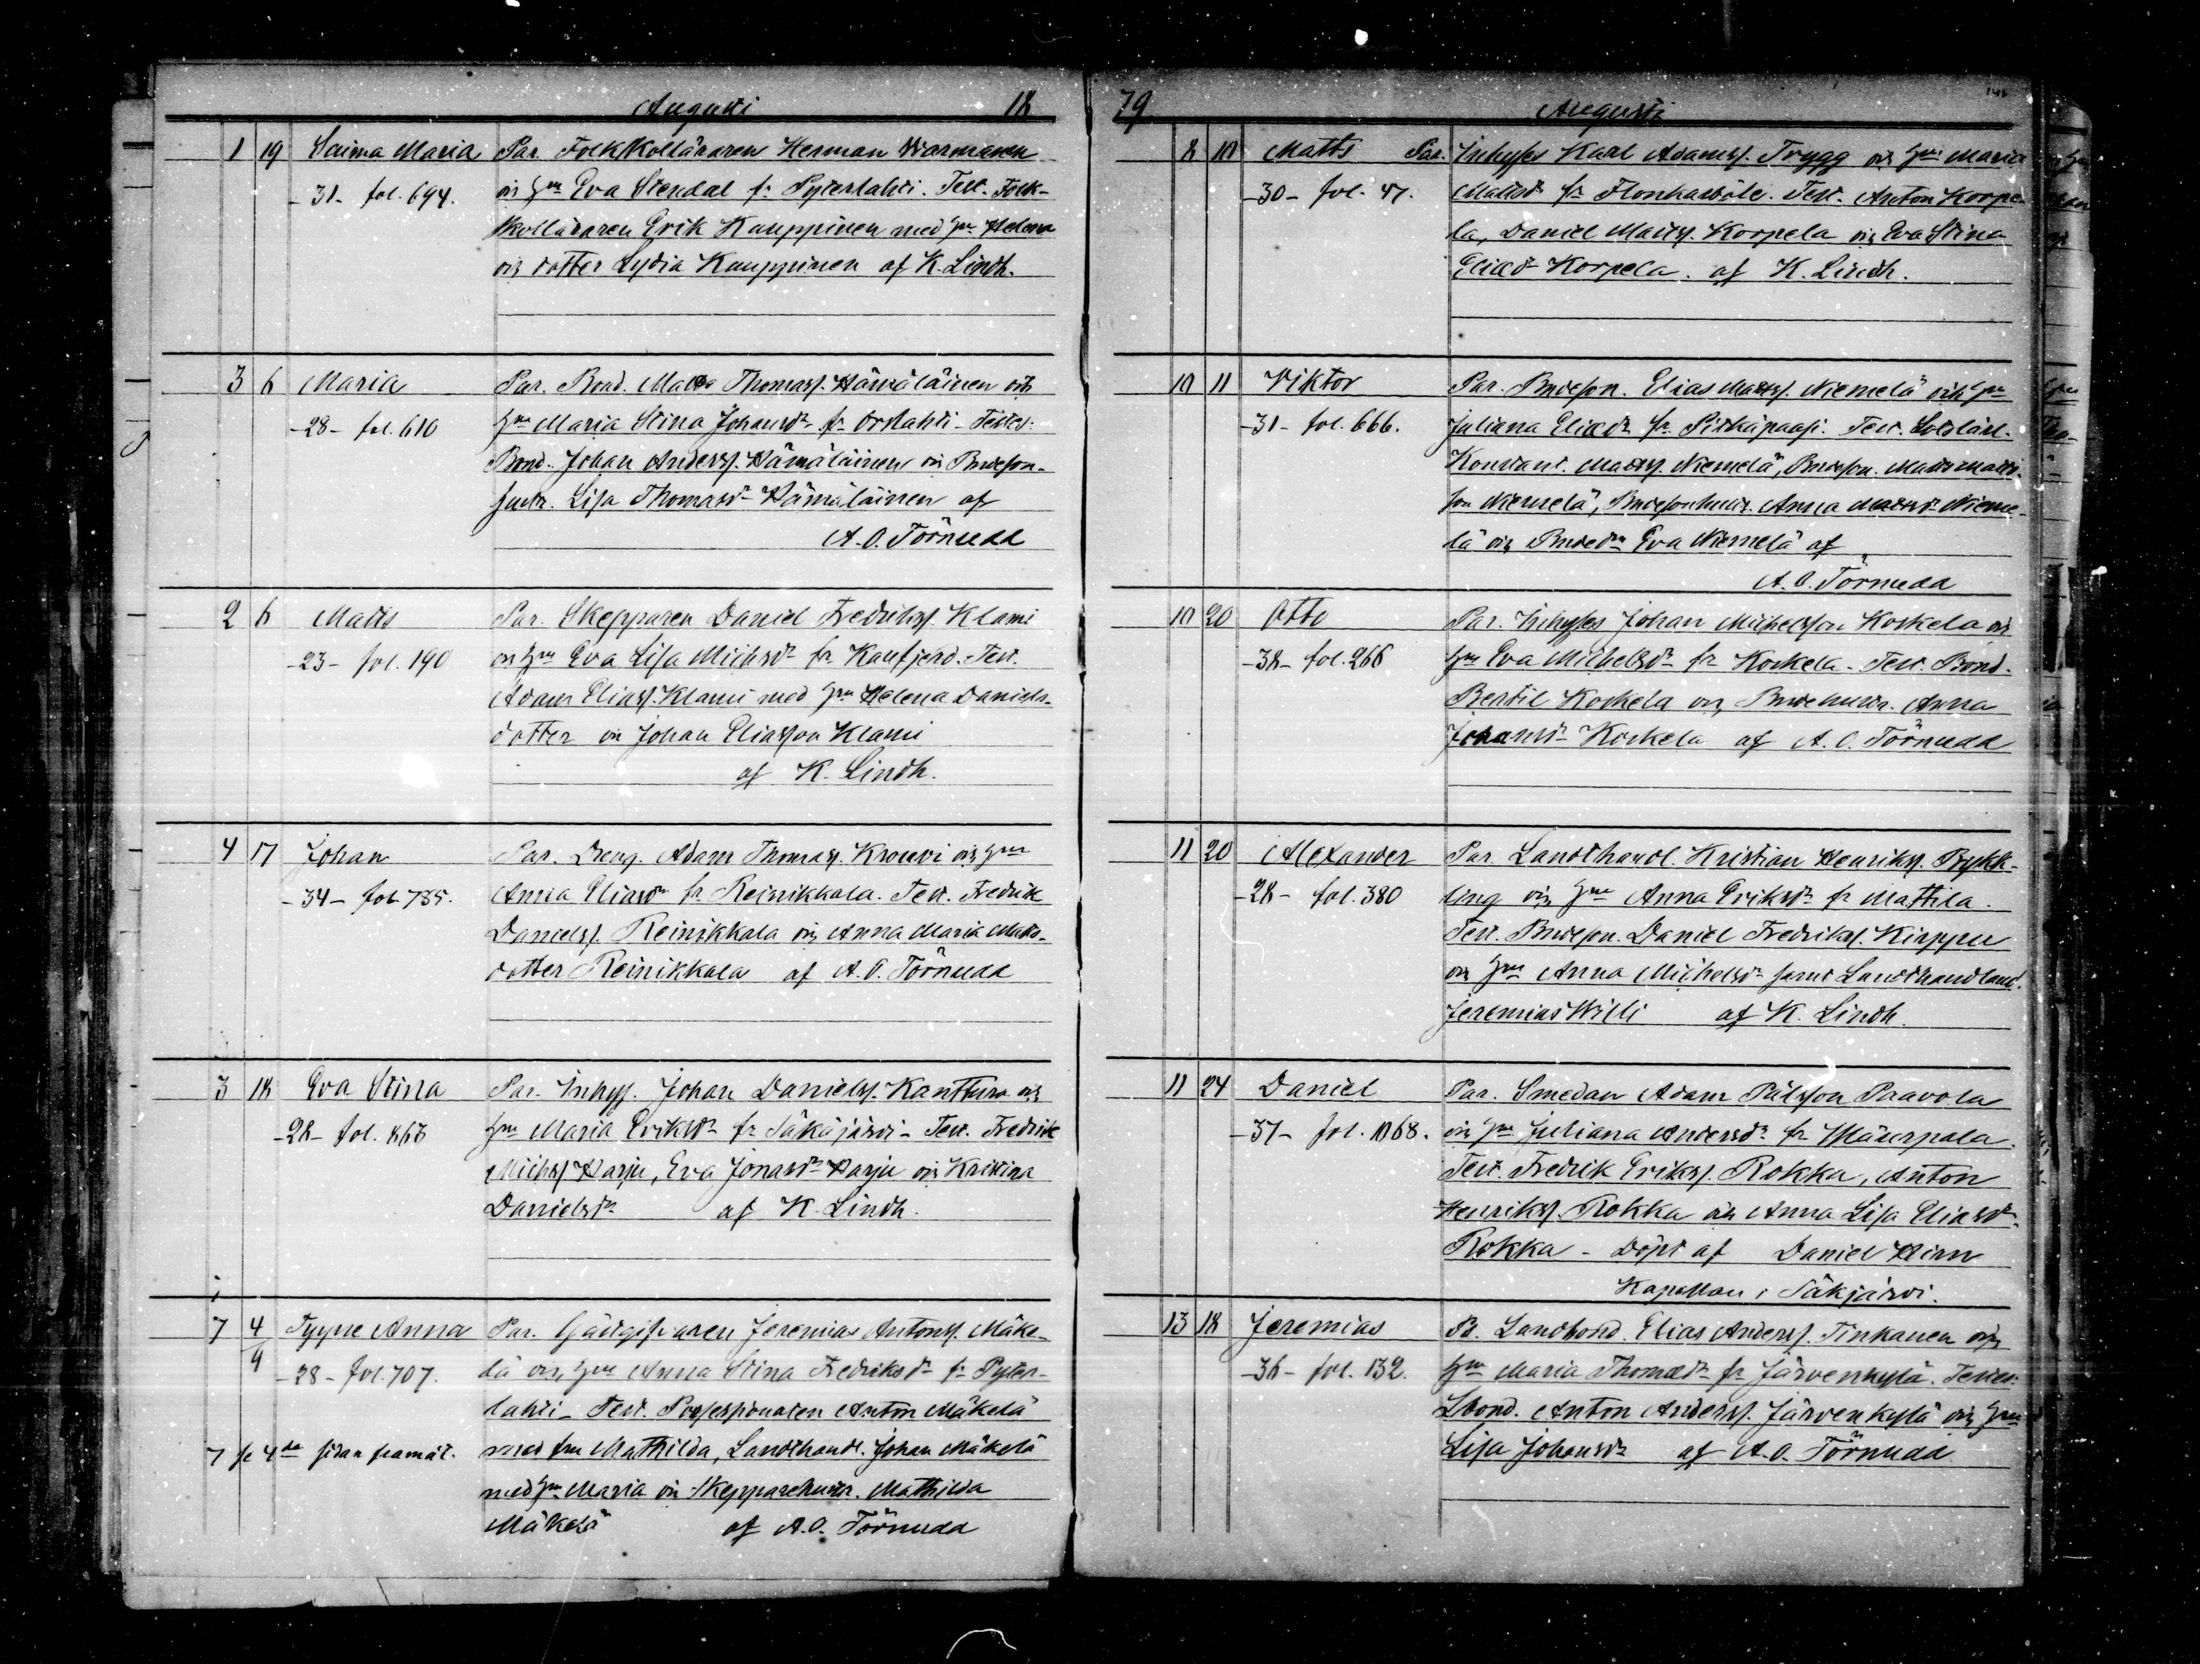 Augusti 18
1 19 Saima Maria Par. Folkskolläraren Herman Warmanen
-31- fol. 694. och hu Eva Stendal fr Pyterlahti. Test. Folk-
skolläraren Erik Kauppinen med hu Helena
och dotter Lydia Kauppinen af K. Lindh.
3 6 Maria Par. Bond. Matts Thomass. Hämäläinen och
-28- fol. 610 hu Maria Stina Johansdr fr Orslahti - Testes:
Bond. Johan Anderss. Hämäläinen och Bondeson-
hustr. Lisa Thomasdr Hämäläinen af
A. O. Törnudd
2 6 Matts Par. Skepparen Daniel Fredrikss. Klami
-23- fol. 190 och hu Eva Lisa Michsdr fr Kanfjerd. Test.
Adam Eliass. Klami med hu Helena Daniels-
dotter och Johan Eliasson Klami
af K. Lindh.
4 17 Johan Par. Dreng. Adam Thomass. Krouvi och hu
-34- fol. 735. Anna Eliasdr fr Reinikkala. Test. Fredrik
Danielss. Reinikkala och Anna Maria Matts-
dotter Reinikkala af A. O. Törnudd
3 18 Eva Stina Par. Inhys. Johan Danielss. Kanttura och
-28- fol. 863 hu Maria Eriksdr fr Säkäjärvi - Test. Fredrik
Michss Harju, Eva Jonasdr Harju och Kristina
Danielsdr af K. Lindh.
7 4/9 Tyyne Anna Par. Gästgifvaren Jeremias Antonss. Mäke-
-28- fol. 707. lä och hu Anna Stina Fredriksdr fr Pyter-
lahti - Test. Possessionaten Anton Mäkelä
7 se 4de sidan framåt. med fru Mathilda, Landthandl. Johan Mäkelä
med hu Maria och Skepparehustr. Mathilda
Mäkelä af A. O. Törnudd
79 Augusti
8 10 Matts Par. Inhyses Karl Adamss. Trygg och hu Maria
-30- fol. 47. Mattsdr fr Flonkarböle. Test. Anton Korpe-
la, Daniel Mattss. Korpela och Eva Stina
Eliasdr Korpela. af K. Lindh.
10 11 Viktor Par. Bondeson. Elias Mattss. Niemelä och hu
-31- fol. 666. Juliana Eliasdr fr Pitkäpaasi. Test.
Konstant. Mattss. Niemelä, Bondeson. Matts Matts-
son Niemelä, Bondesonhustr. Anna Mattsdr Nieme-
lä och Eva Niemelä af
A. O. Törnudd
10 20 Otto Par. Inhyses Johan Michelsson Koskela och
-38- fol. 266 hu Eva Michelsdr fr Koskela - Test. Bond.
Bertil Koskela och Bondehustr. Anna
Johansdr Koskela af A. O. Törnudd
11 20 Alexander Par. Landthandl. Kristian Henrikss. Rykk-
-28- fol. 380 ling och hu Anna Eriksdr fr Mattila.
Test. Bondeson. Daniel Fredrikss. Kirppu
och hu Anna Michelsdr samt Landthandland.
Jeremias Willi af K. Lindh.
11 24 Daniel Par. Smeden Adam Pålsson Paavola
-37- fol. 1068. och hu Juliana Andersdr fr Muurpala.
Test. Fredrik Erikss. Rokka, Anton
Henrikss. Rokka och Anna Lisa Eliasdr
Rokka - Döpt af Daniel Hirn
Kapellan i Säkjärvi.
13 18 Jeremias Pr. Landbond. Elias Anderss. Tinkanen och
-36- fol. 132. hu Maria Thomasdr fr Järvenkylä. Testes:
Lbond. Anton Anderss. Järvenkylä och hu
Lisa Johansdr af A. O. Törnudd